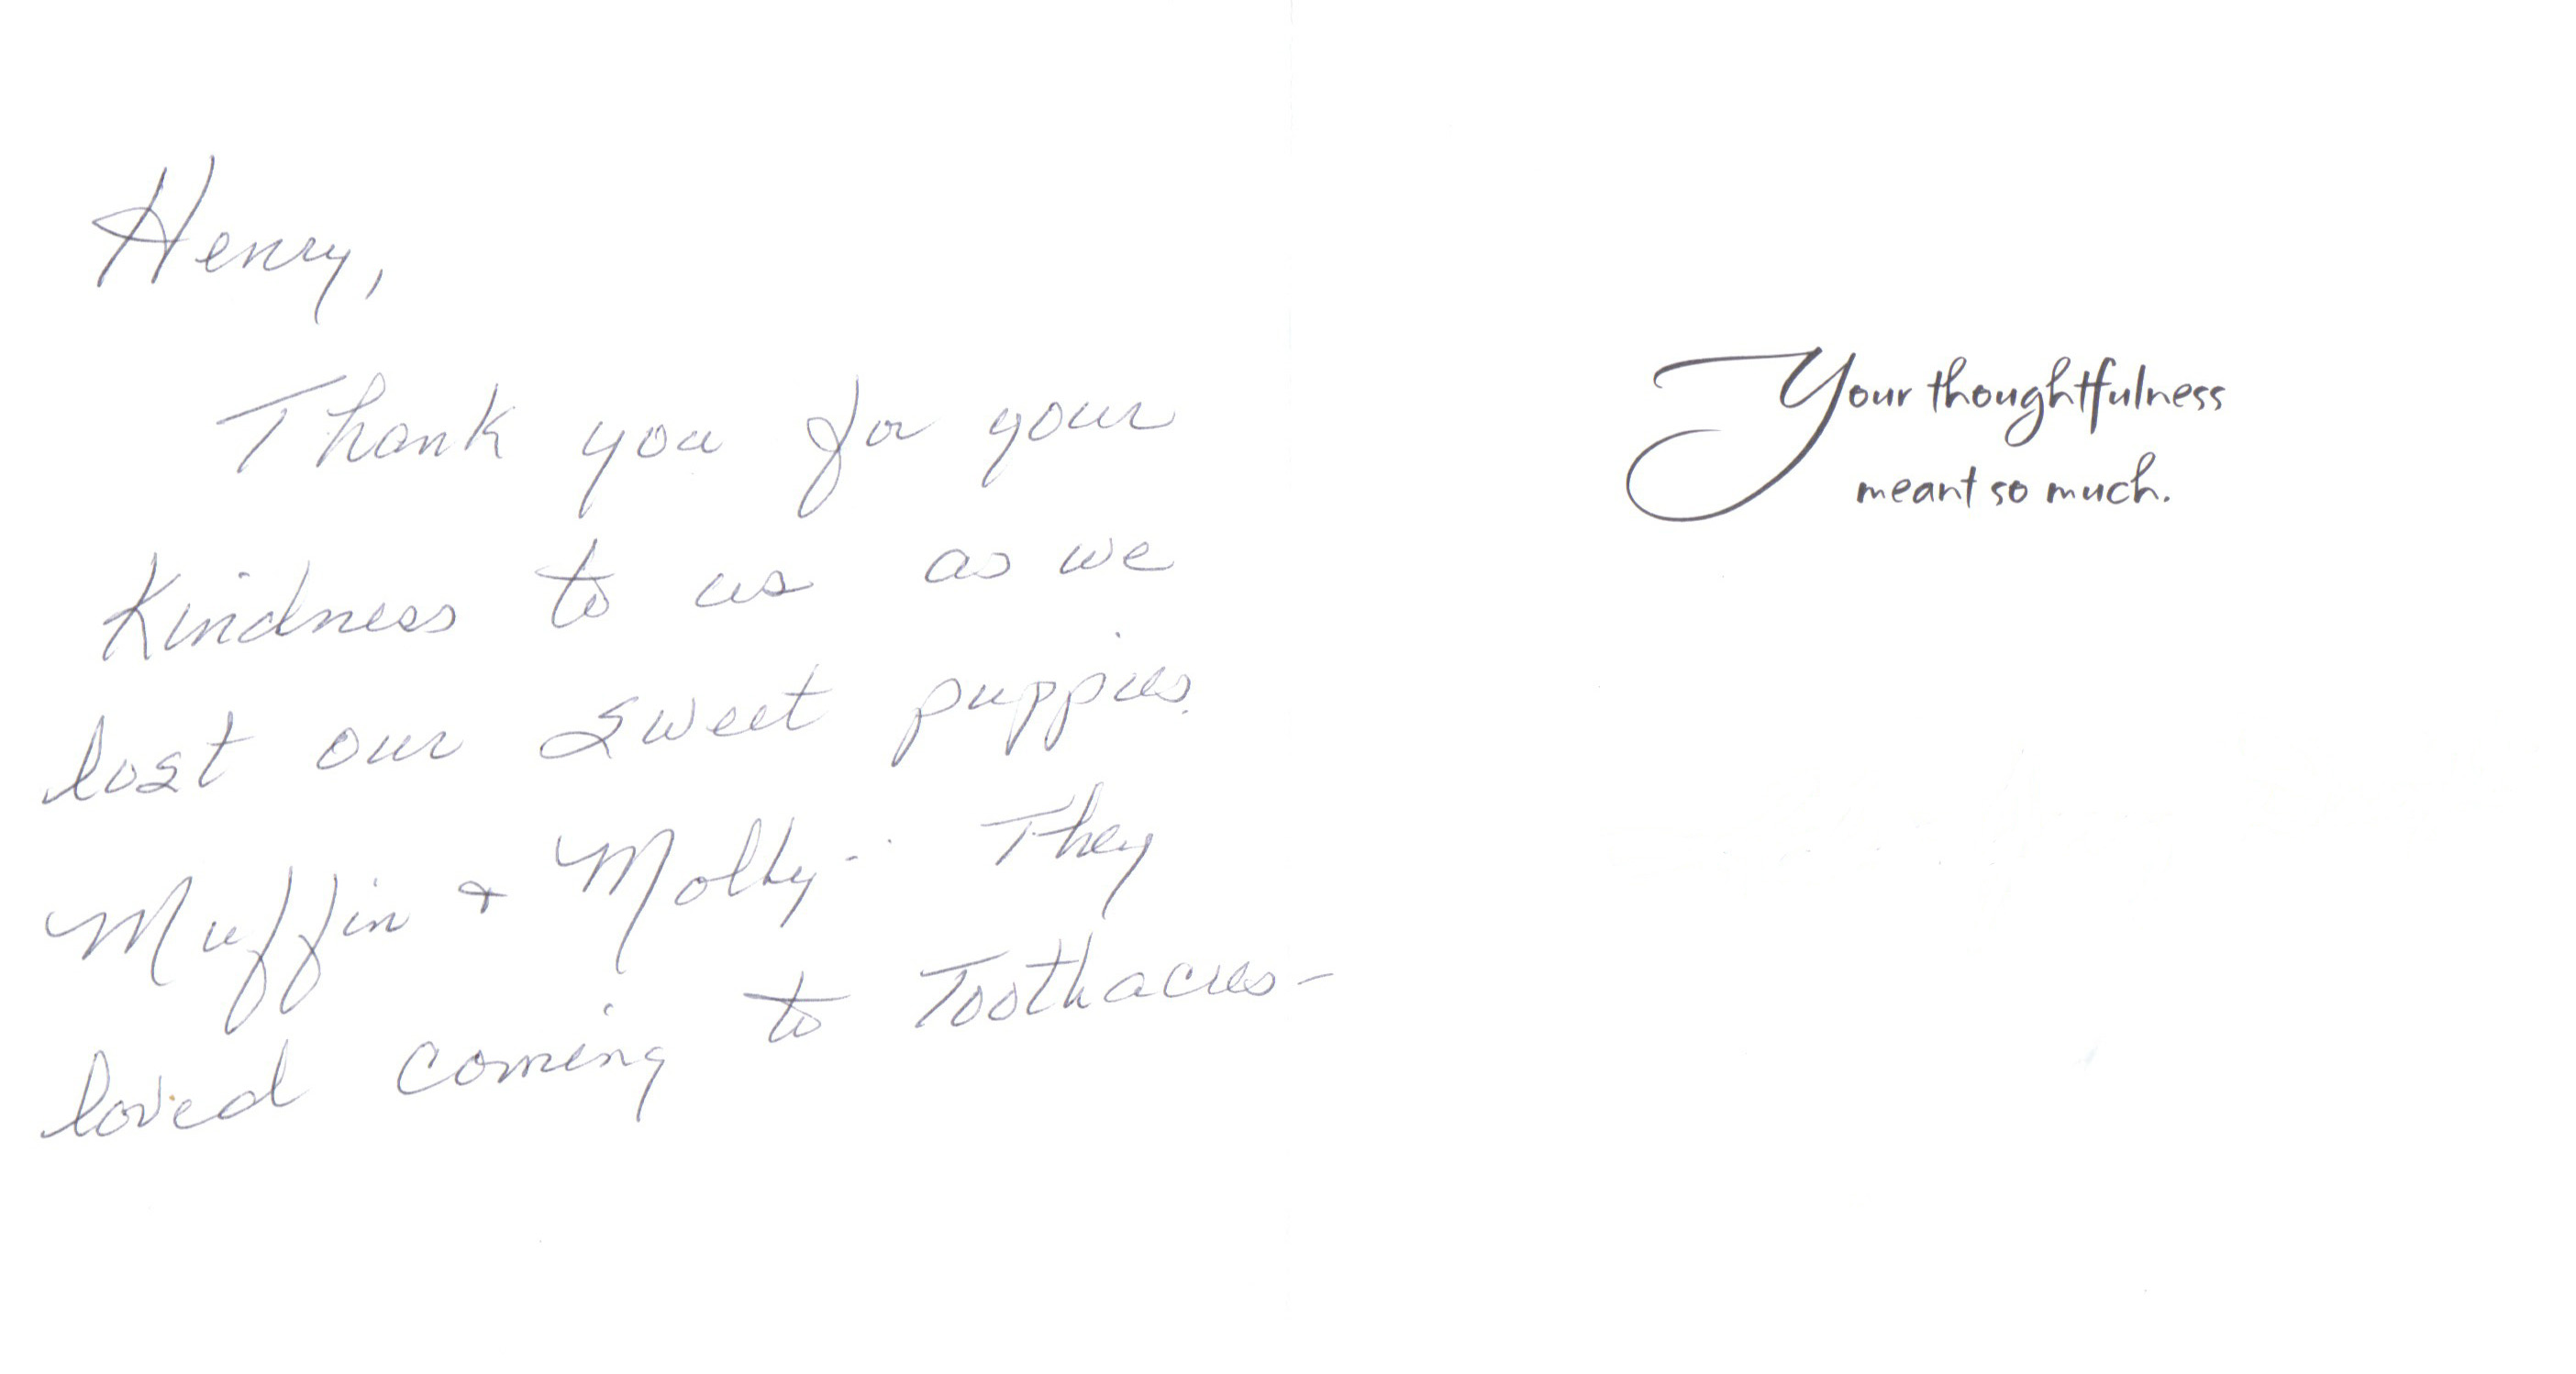 Henry,
Thank you for your
Kindness to us as we
lost our sweet puppies.
Muffin & Molly - They
loved coming to Toothacres -
Your thoughtfulness
meant so much.